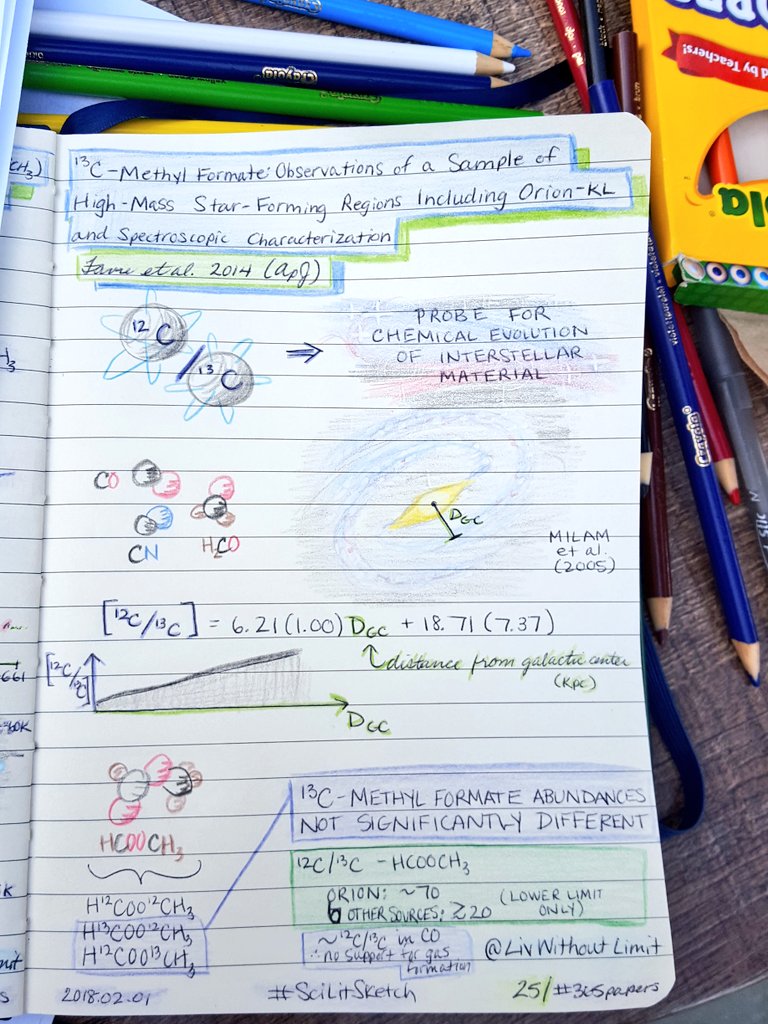 ¹³C-Methyl Formate: Observations of a Sample of
High-Mass Star-Forming Regions Including Orion-KL
and Spectroscopic Characterization
Favre et al. 2014 (ApJ)
¹²C / ¹³C ⇒
PROBE FOR
CHEMICAL EVOLUTION
OF INTERSTELLAR
MATERIAL
CO
CN
H₂CO
D_GC
MILAM
et al.
(2005)
[¹²C/¹³C] = 6.21(1.00) D_GC + 18.71(7.37)
distance from galactic center
(kpc)
[¹²C/¹³C]
D_GC
HCOOCH₃
H¹²COO¹²CH₃
H¹³COO¹²CH₃
H¹²COO¹³CH₃
¹³C-METHYL FORMATE ABUNDANCES
NOT SIGNIFICANTLY DIFFERENT
12C/13C - HCOOCH₃
ORION: ~70
6 OTHER SOURCES: ≳20
(LOWER LIMIT
ONLY)
~¹²C/¹³C in CO
∴ no support for gas
formation
@LivWithoutLimit
2018.02.01
#SciLitSketch
25/#365papers
CH₃)
661
60K
Crayola
Crayola
Crayola
ola
ed by Teachers!